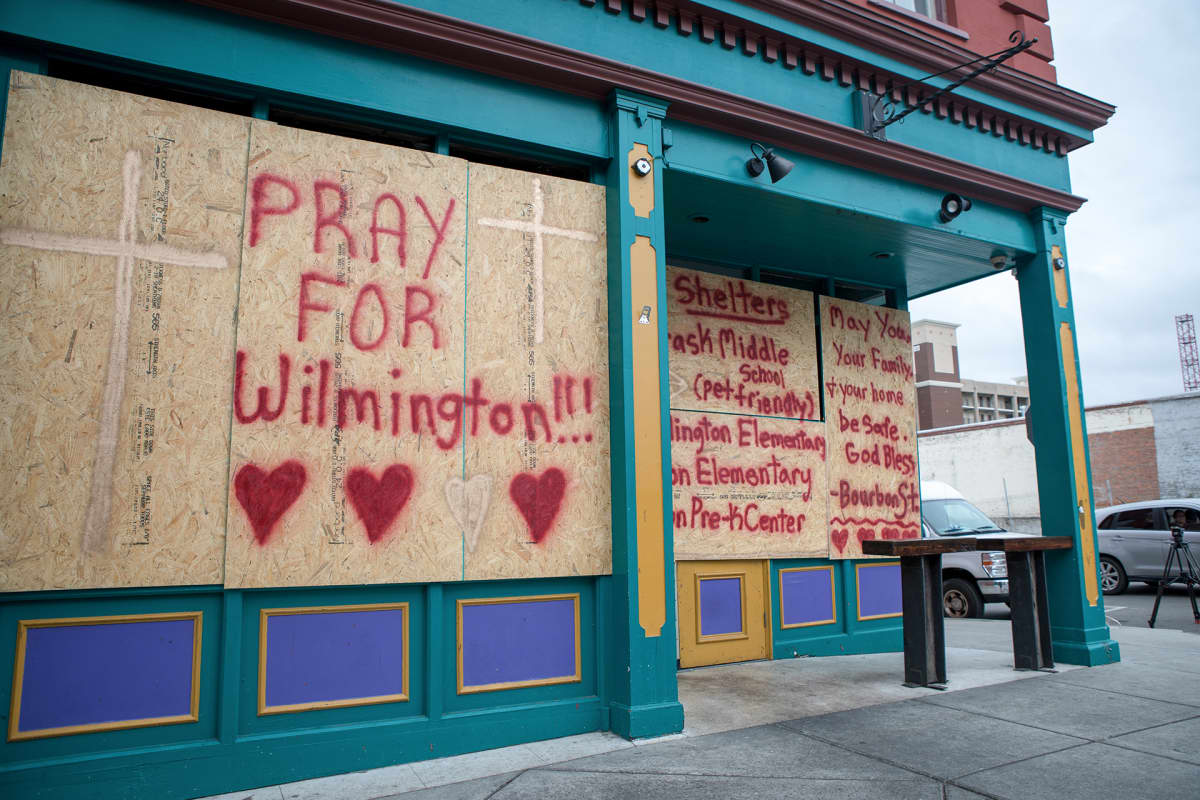 PRAY
FOR
Wilmington!!!
Shelters
ask Middle
School
(pet-friendly)
ington Elementary
on Elementary
on Pre-K Center
May You,
Your Family,
& your home
be safe.
God Bless
-Bourbon St.